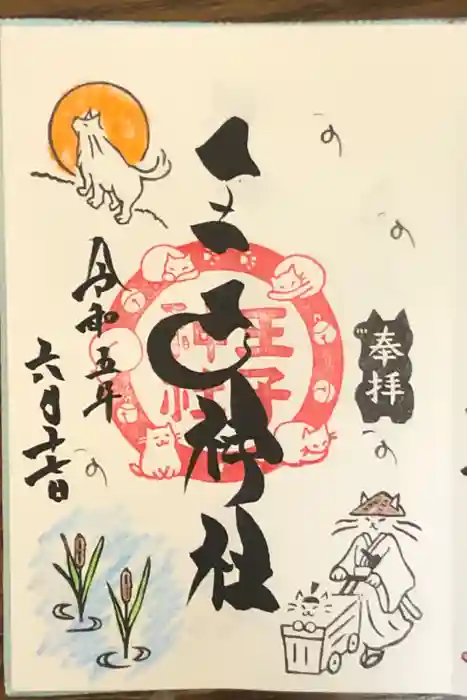 奉拝
王子神社
王子神社
令和五年
六月十七日